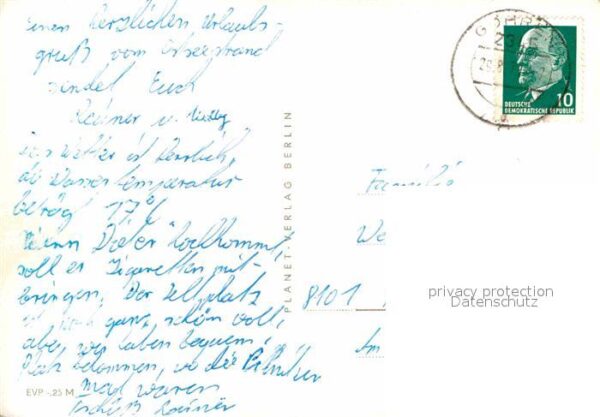 einen herzlichen Urlaubs-
gruß vom Ostseestrand
sendet Euch
Reiner u.
Das Wetter ist herrlich,
die Wassertemperatur
beträgt 17°C
Wenn Dieter kommt,
soll er Zigaretten mit-
bringen. Der Zeltplatz
ist noch ganz schön voll,
aber wir haben bequem
Platz bekommen, wo die
mal waren
Tschüß Reiner
EVP -,25 M
PLANET-VERLAG BERLIN
23
DEUTSCHE
DEMOKRATISCHE REPUBLIK
10
Familie
We
8101
Am
privacy protection
Datenschutz